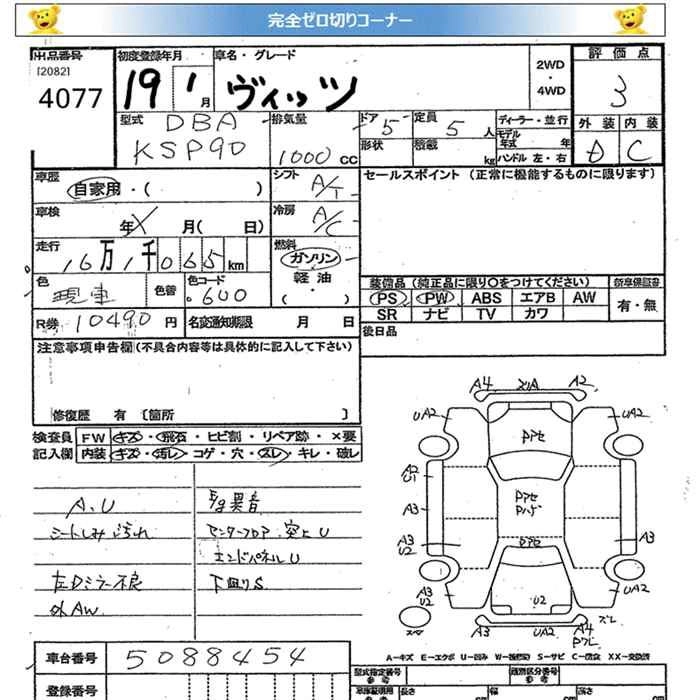 完全ゼロ切りコーナー
出品番号
[2082]
4077
初度登録年月
19 1 月
車名・グレード
ヴィッツ
2WD
・
4WD
評価点
3
外装 内装
D C
型式
DBA
KSP90
排気量
1000 cc
ドア 5
定員 5 人
形状
積載 kg
ディーラー・並行
モデル
年式 年
ハンドル 左・右
車歴
自家用・( )
シフト
A/T
セールスポイント (正常に機能するものに限ります)
車検
年 月( 日)
冷房
A/C
走行
16万1千065 km
燃料
ガソリン
軽油
( ・ )
色
現車
色替
色コード
600
装備品 (純正品に限り○をつけてください)
新車保証書
PS PW ABS エアB AW
SR ナビ TV カワ
有・無
R券 10490 円
名変通知期限 月 日
後日品
注意事項申告欄 (不具合内容等は具体的に記入して下さい)
修復歴 有 [箇所 ]
検査員
記入欄
FW キズ・飛石・ヒビ割・リペア跡・×要
内装 キズ・汚レ・コゲ・穴・スレ・キレ・破レ
A.U
シートしみ汚れ
左Dミラー不良
外AW
E/g異音
センターフロア突上U
エンドパネルU
下廻りS
A4 A2
UA2 UA2
Pアセ
A2
U1
Pアセ
A3
Pアセ
A3
U2
A3
A3
U2
U2
UA2
A3 UA2 A4
A－キズ E－エクボ U－凹み W－補修跡 S－サビ C－腐食 XX－交換済
車台番号 5088454
登録番号
型式指定番号
参考
類別区分番号
参考
長さ
幅
高さ